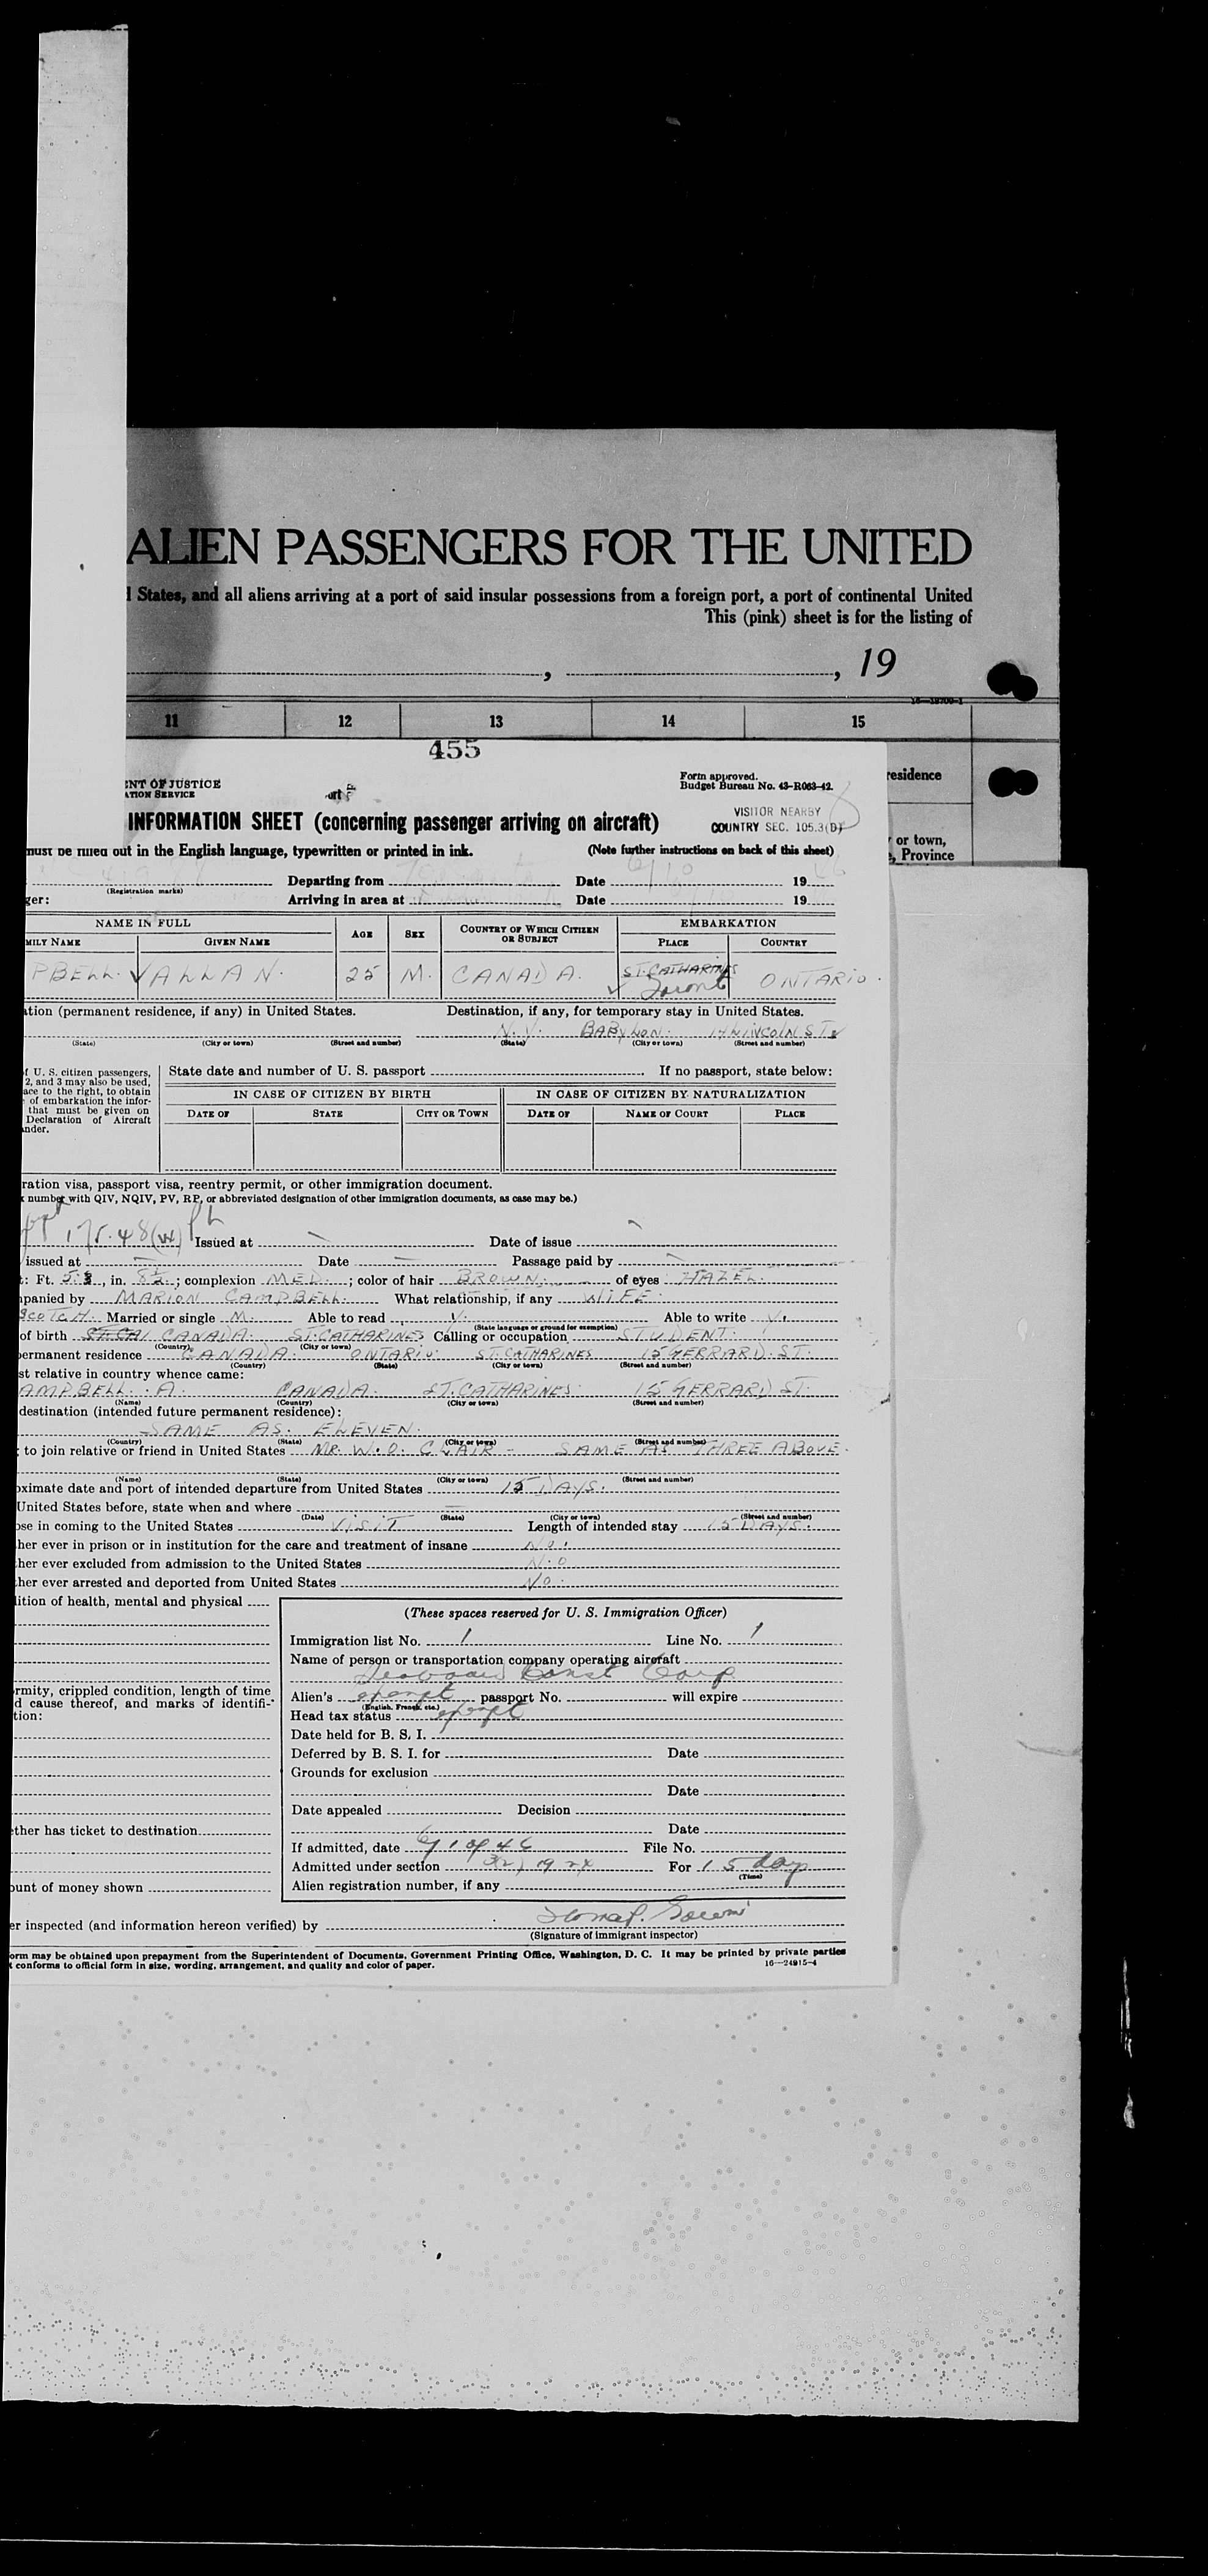 ALIEN PASSENGERS FOR THE UNITED
States, and all aliens arriving at a port of said insular possessions from a foreign port, a port of continental United
This (pink) sheet is for the listing of
, , 19
11 12 13 14 15
455
residence
or town,
Province
ENT OF JUSTICE
ATION SERVICE
Form approved.
Budget Bureau No. 43-R063-42.
VISITOR NEARBY
COUNTRY SEC. 105.3(D)
INFORMATION SHEET (concerning passenger arriving on aircraft)
must be filled out in the English language, typewritten or printed in ink. (Note further instructions on back of this sheet)
Departing from Date 19
(Registration marks)
ger: Arriving in area at Date 19
NAME IN FULL AGE SEX COUNTRY OF WHICH CITIZEN OR SUBJECT EMBARKATION
MILY NAME GIVEN NAME PLACE COUNTRY
PBELL. ALLAN. 25 M. CANADA. ST. CATHARINES Toronto ONTARIO.
tion (permanent residence, if any) in United States. Destination, if any, for temporary stay in United States.
N.Y. BABYLON. LINCOLN ST.
(State) (City or town) (Street and number) (State) (City or town) (Street and number)
f U. S. citizen passengers,
2, and 3 may also be used,
ace to the right, to obtain
of embarkation the infor-
that must be given on
Declaration of Aircraft
nder.
State date and number of U. S. passport If no passport, state below:
IN CASE OF CITIZEN BY BIRTH IN CASE OF CITIZEN BY NATURALIZATION
DATE OF STATE CITY OR TOWN DATE OF NAME OF COURT PLACE
ration visa, passport visa, reentry permit, or other immigration document.
number with QIV, NQIV, PV, RP, or abbreviated designation of other immigration documents, as case may be.)
175.48(w) Issued at Date of issue
issued at Date Passage paid by
: Ft. 5 , in. 8½ ; complexion MED. ; color of hair BROWN. of eyes HAZEL.
panied by MARION CAMPBELL. What relationship, if any WIFE.
SCOTCH. Married or single M. Able to read Y. Able to write Y.
(State language or ground for exemption)
of birth CANADA. ST. CATHARINES Calling or occupation STUDENT.
(Country) (City or town)
permanent residence CANADA. ONTARIO ST. CATHARINES 15 GERRARD ST.
(Country) (State) (City or town) (Street and number)
st relative in country whence came:
AMPBELL. A. CANADA. ST. CATHARINES. 15 GERRARD ST.
(Name) (Country) (City or town) (Street and number)
destination (intended future permanent residence):
SAME AS. ELEVEN.
(Country) (State) (City or town) (Street and number)
to join relative or friend in United States MR. W. O. CLAIR - SAME AS THREE ABOVE.
(Name) (State) (City or town) (Street and number)
oximate date and port of intended departure from United States 15 DAYS.
United States before, state when and where
(Date) (State) (City or town) (Street and number)
ose in coming to the United States VISIT Length of intended stay 15 DAYS.
her ever in prison or in institution for the care and treatment of insane No.
her ever excluded from admission to the United States No
her ever arrested and deported from United States No.
lition of health, mental and physical
(These spaces reserved for U. S. Immigration Officer)
Immigration list No. 1 Line No. 1
Name of person or transportation company operating aircraft
Corp
rmity, crippled condition, length of time
d cause thereof, and marks of identifi-
tion:
Alien's exempt passport No. will expire
(English, French, etc.)
Head tax status exempt
Date held for B. S. I.
Deferred by B. S. I. for Date
Grounds for exclusion
Date
Date appealed Decision
ther has ticket to destination
Date
If admitted, date File No.
Admitted under section 3(2) 1924 For 15 days
(Time)
ount of money shown
Alien registration number, if any
er inspected (and information hereon verified) by
(Signature of immigrant inspector)
orm may be obtained upon prepayment from the Superintendent of Documents, Government Printing Office, Washington, D. C. It may be printed by private parties
conforms to official form in size, wording, arrangement, and quality and color of paper.
16—24915-4